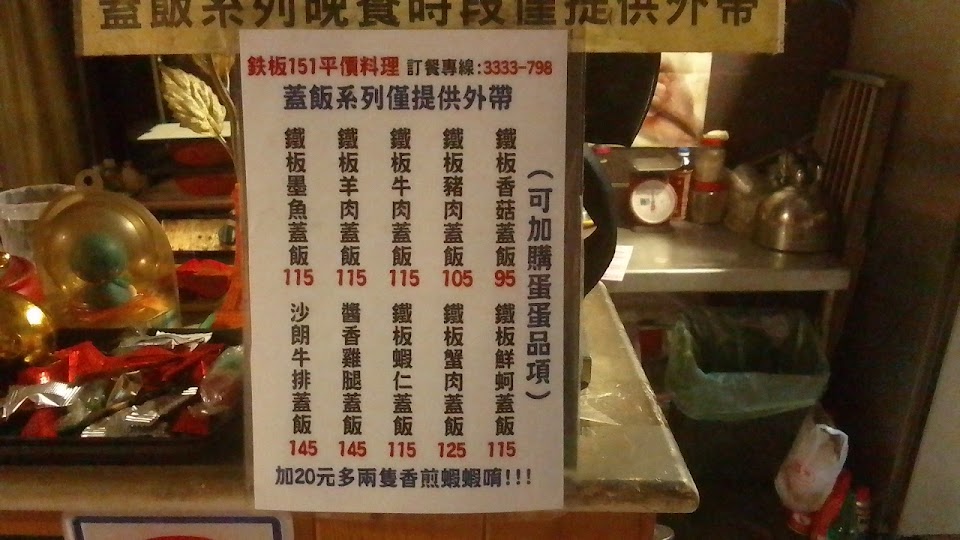 蓋飯系列晚餐時段僅提供外帶
鉄板151平價料理 訂餐專線:3333-798
蓋飯系列僅提供外帶
(可加購蛋蛋品項)
鐵板香菇蓋飯 95
鐵板豬肉蓋飯 105
鐵板牛肉蓋飯 115
鐵板羊肉蓋飯 115
鐵板墨魚蓋飯 115
鐵板鮮蚵蓋飯 115
鐵板蟹肉蓋飯 125
鐵板蝦仁蓋飯 115
醬香雞腿蓋飯 145
沙朗牛排蓋飯 145
加20元多兩隻香煎蝦蝦唷!!!